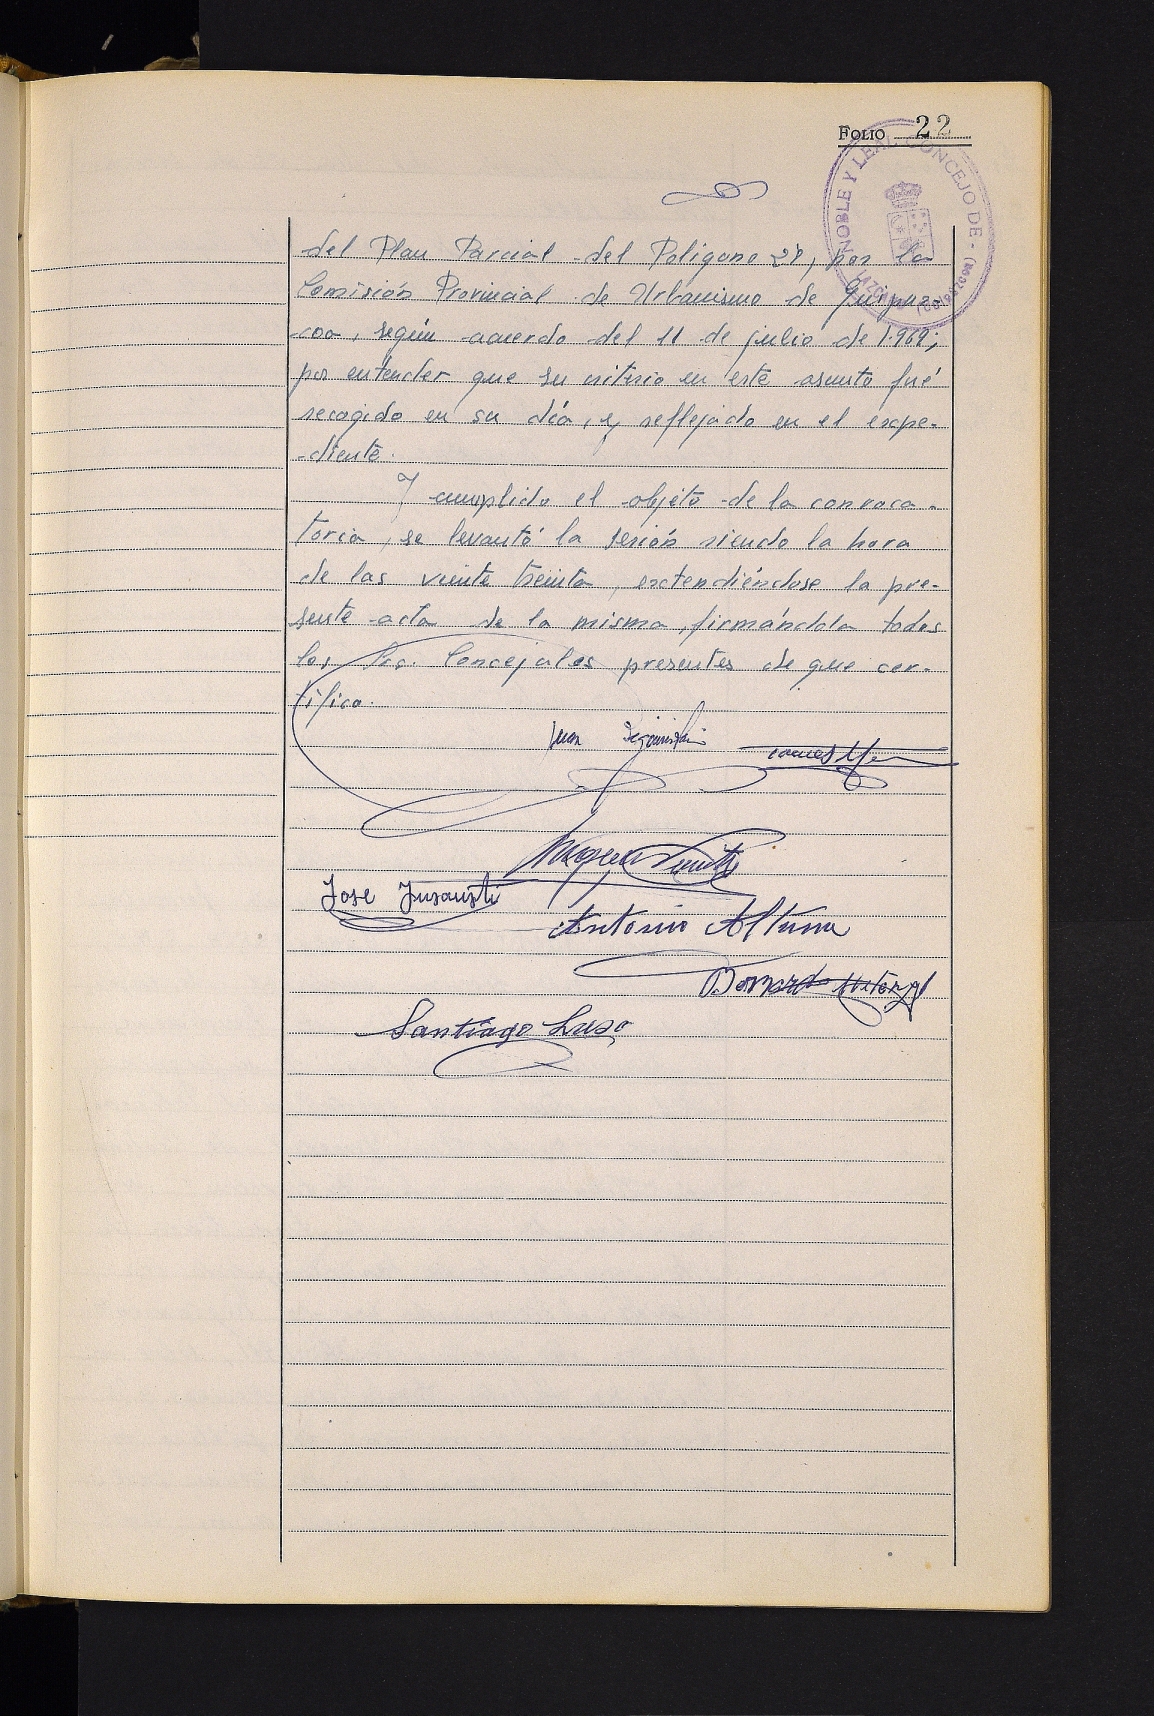 FOLIO 22
NOBLE Y LEAL CONCEJO DE - LAZCANO (GUIPUZCOA)
del Plan Parcial del Poligono 28, por la
Comisión Provincial de Urbanismo de Guipuz-
coa, según acuerdo del 11 de julio de 1.969;
por entender que su criterio en este asunto fué
recogido en su día, y reflejado en el expe-
diente.
Y cumplido el objeto de la convoca-
toria, se levantó la sesión siendo la hora
de las veinte treinta, extendiéndose la pre-
sente acta de la misma, firmándola todos
los Srs. Concejales presentes de que cer-
tifico.
Juan
Miguel
Jose Insausti
Antonio Altuna
Bernardo
Santiago Luso